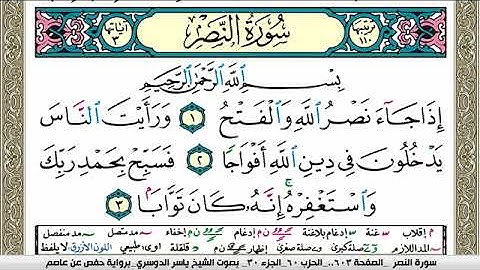 آياتها ٣ سُورَةُ النَّصْرِ ترتيبها ١١٠
بِسْمِ اللَّهِ الرَّحْمَٰنِ الرَّحِيمِ
إِذَا جَآءَ نَصْرُ ٱللَّهِ وَٱلْفَتْحُ ١ وَرَأَيْتَ ٱلنَّاسَ
يَدْخُلُونَ فِي دِينِ ٱللَّهِ أَفْوَاجًا ٢ فَسَبِّحْ بِحَمْدِ رَبِّكَ
وَٱسْتَغْفِرْهُ إِنَّهُۥ كَانَ تَوَّابًۢا ٣
م إقلاب غنة إدغام بلاغنة إدغام إخفاء مد متصل مد منفصل
المد اللازم صلة كبرى وصلة صغرى إظهار قلقلة طبيعي اللون الأزرق لا يلفظ
سورة النصر _الصفحة ٦٠٣_ الحزب ٦٠_الجزء ٣٠_ بصوت الشيخ ياسر الدوسري_برواية حفص عن عاصم